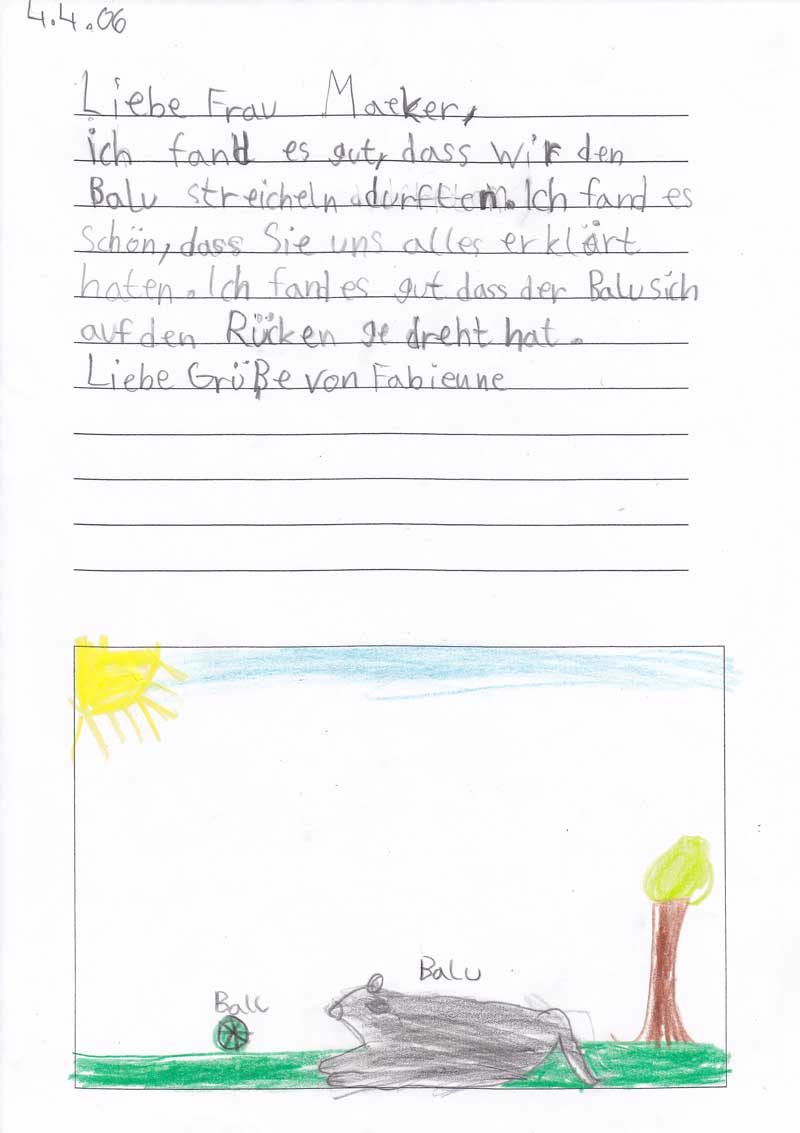 4.4.06
Liebe Frau Maeker,
ich fand es gut, dass wir den
Balu streicheln durften. Ich fand es
Schön, dass Sie uns alles erklärt
haten. Ich fand es gut dass der Balu sich
auf den Rücken ge dreht hat.
Liebe Grüße von Fabienne
Balu
Ball